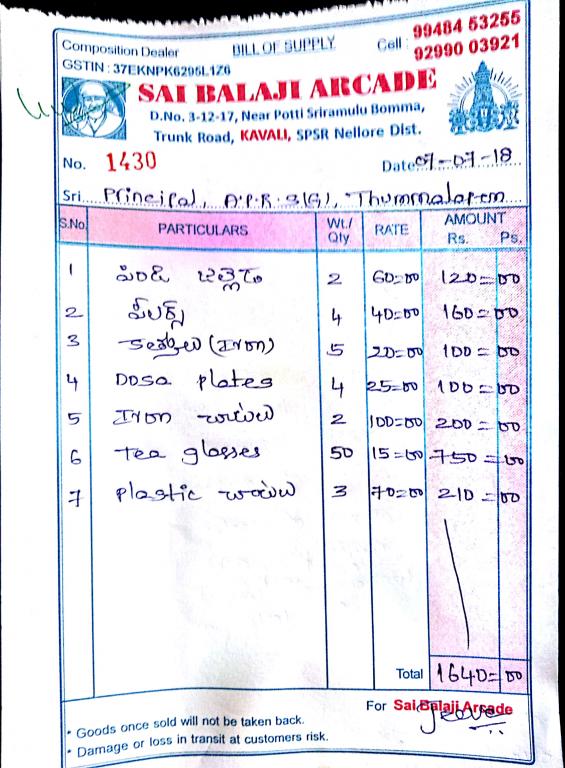 Composition Dealer BILL OF SUPPLY Cell : 99484 53255
GSTIN : 37EKNPK6295L1Z6 92990 03921
SAI BALAJI ARCADE
D.No. 3-12-17, Near Potti Sriramulu Bomma,
Trunk Road, KAVALI, SPSR Nellore Dist.
No. 1430 Date 07-07-18
Sri Principal, A.P.R.S(G), Thummalapem
S.No. PARTICULARS Wt./ Qty RATE AMOUNT Rs. Ps.
1 పిండి జల్లెడ 2 60=00 120=00
2 4 40=00 160=00
3 (Iron) 5 20=00 100=00
4 Dosa plates 4 25=00 100=00
5 Iron 2 100=00 200=00
6 tea glasses 50 15=00 750=00
7 plastic 3 70=00 210=00
Total 1640=00
For Sai Balaji Arcade
* Goods once sold will not be taken back.
* Damage or loss in transit at customers risk.